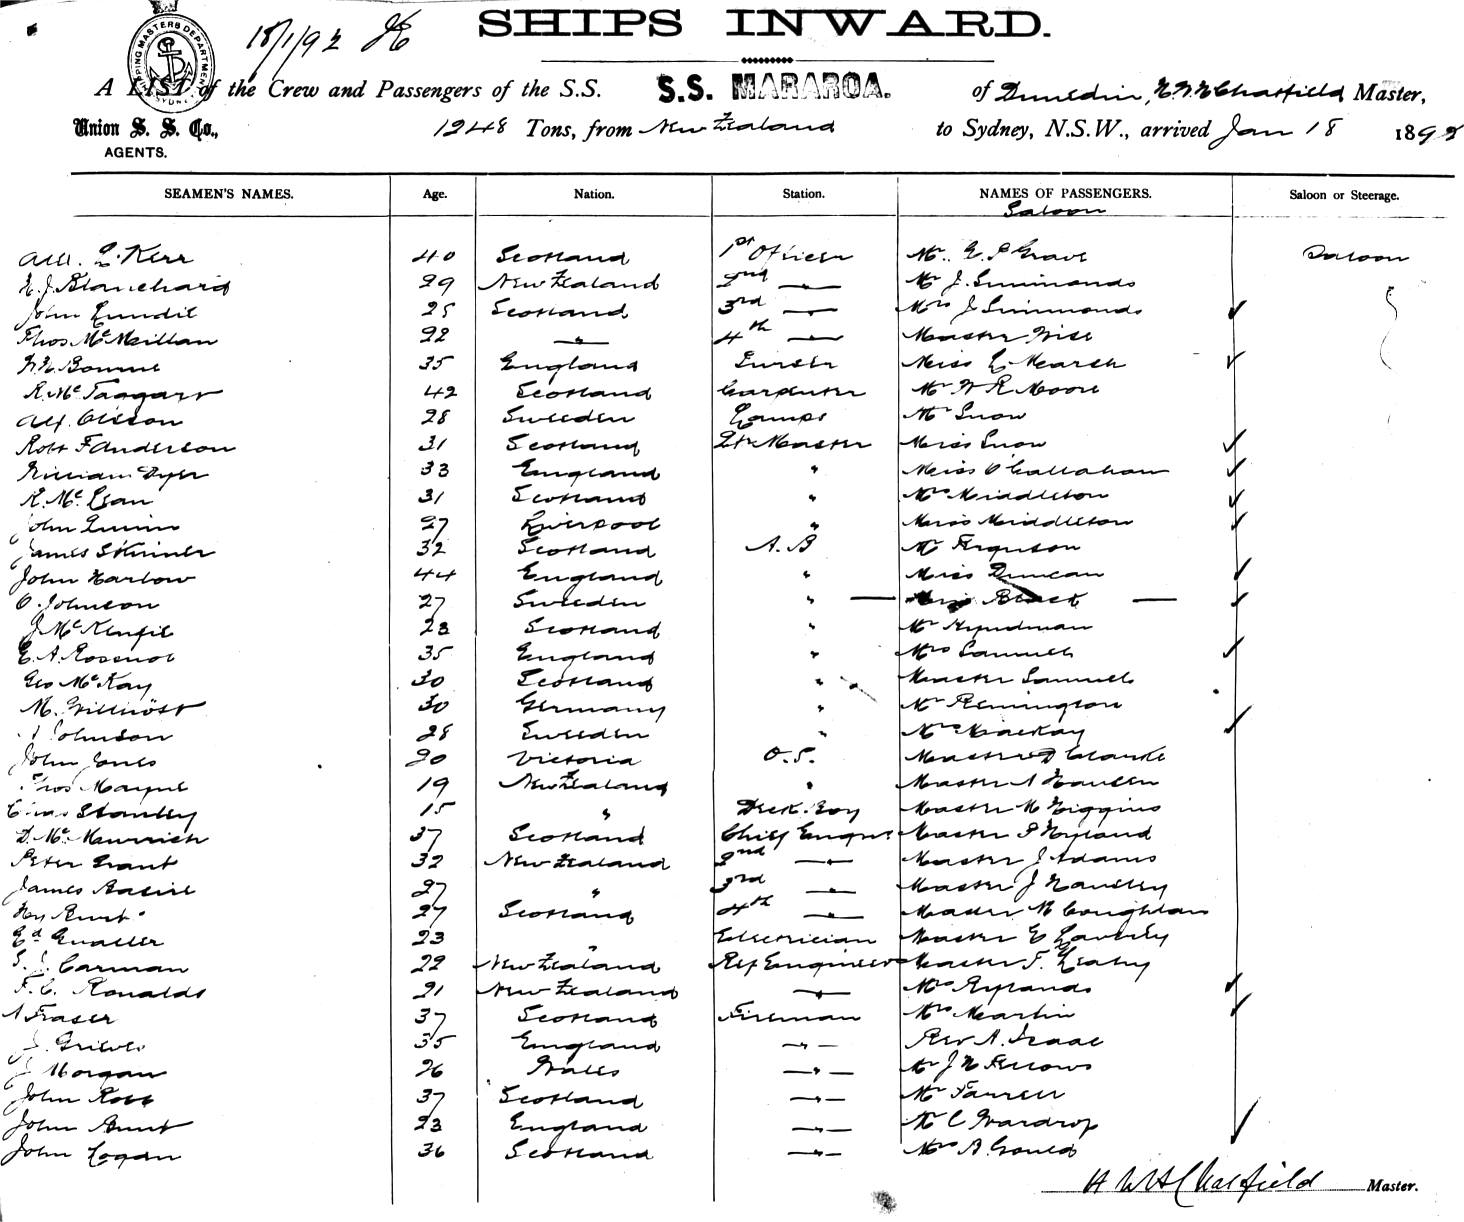 18/1/92
SHIPS INWARD.
SHIPPING MASTERS DEPARTMENT SYDNEY
A LIST of the Crew and Passengers of the S.S. S.S. MARAROA. of Dunedin, Chatfield Master,
Union S. S. Co., 1248 Tons, from New Zealand to Sydney, N.S.W., arrived Jan 18 1892
AGENTS.
SEAMEN'S NAMES. Age. Nation. Station. NAMES OF PASSENGERS. Saloon or Steerage.
Saloon
Kerr 40 Scotland 1st Officer Mr. Saloon
E. J. Blanchard 29 New Zealand 2nd — " — Mr J. Simmonds
John 25 Scotland 3rd — " — Mrs J. Simmonds
Thos McMillan 22 — " — 4th — " — Master Wise
35 England Purser Miss
R. McTaggart 42 Scotland Carpenter Mr W R Moore
Alf. Olsson 28 Sweden Lamps Mr Snow
Robt F Anderson 31 Scotland Qtr Master Miss Snow
William Dyer 33 England " Miss O'Callahan
R. McLean 31 Scotland " Mrs Middleton
John Quinn 27 Liverpool " Miss Middleton
James Skinner 32 Scotland A.B Mr Ferguson
John Harlow 44 England " Miss Duncan
O. Johnson 27 Sweden " — Miss Black —
J McKenzie 23 Scotland " Mr Hyndman
E. A. 35 England " Mrs Samuels
Geo McKay 30 Scotland " Master Samuels
M. 30 Germany " Mr Remington
Johnson 28 Sweden " Mrs Mackay
John Jones 20 Victoria O.S. Master D Clarke
Thos Mayne 19 New Zealand " Master
Chas Stanley 15 " Deck Boy Master M Higgins
D. McMurrich 37 Scotland Chief Engnr Master P Hyland
Peter Grant 32 New Zealand 2nd — " — Master J Adams
James 27 " 3rd — " — Master J
Hy 27 Scotland 4th — " — Master M Coughlan
Ed 23 " Electrician Master E Laverty
Carman 22 New Zealand Ref Engineer Master F. Leahy
F. C. Ronalds 21 New Zealand — " — Mrs Rylands
A Fraser 37 Scotland Fireman Mrs Martin
J. Grieves 35 England — " — Rev A. Isaac
J Morgan 26 Wales — " — Mr J H Fellows
John Ross 37 Scotland — " — Mr Farrell
John 23 England — " — Mr C Wardrop
John Logan 36 Scotland — " — Mrs A. Gould
Chatfield Master.